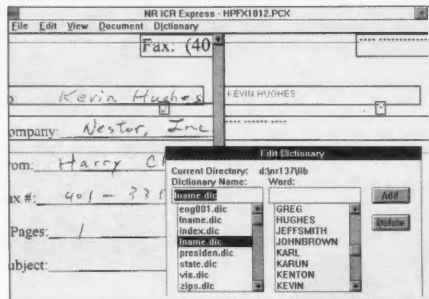 NR ICR Express - HPFX1012.PCX
File Edit View Document Dictionary
Fax: (40
Kevin Hughes
KEVIN HUGHES
ompany: Nestor, Inc
rom: Harry
ax #: 401 - 331
Pages: 1
ubject:
Edit Dictionary
Current Directory: d:\nr137\lib
Dictionary Name: Word:
lname.dic
Add
Delete
eng001.dic
fname.dic
index.dic
lname.dic
presiden.dic
state.dic
vis.dic
zips.dic
GREG
HUGHES
JEFFSMITH
JOHNBROWN
KARL
KARUN
KENTON
KEVIN